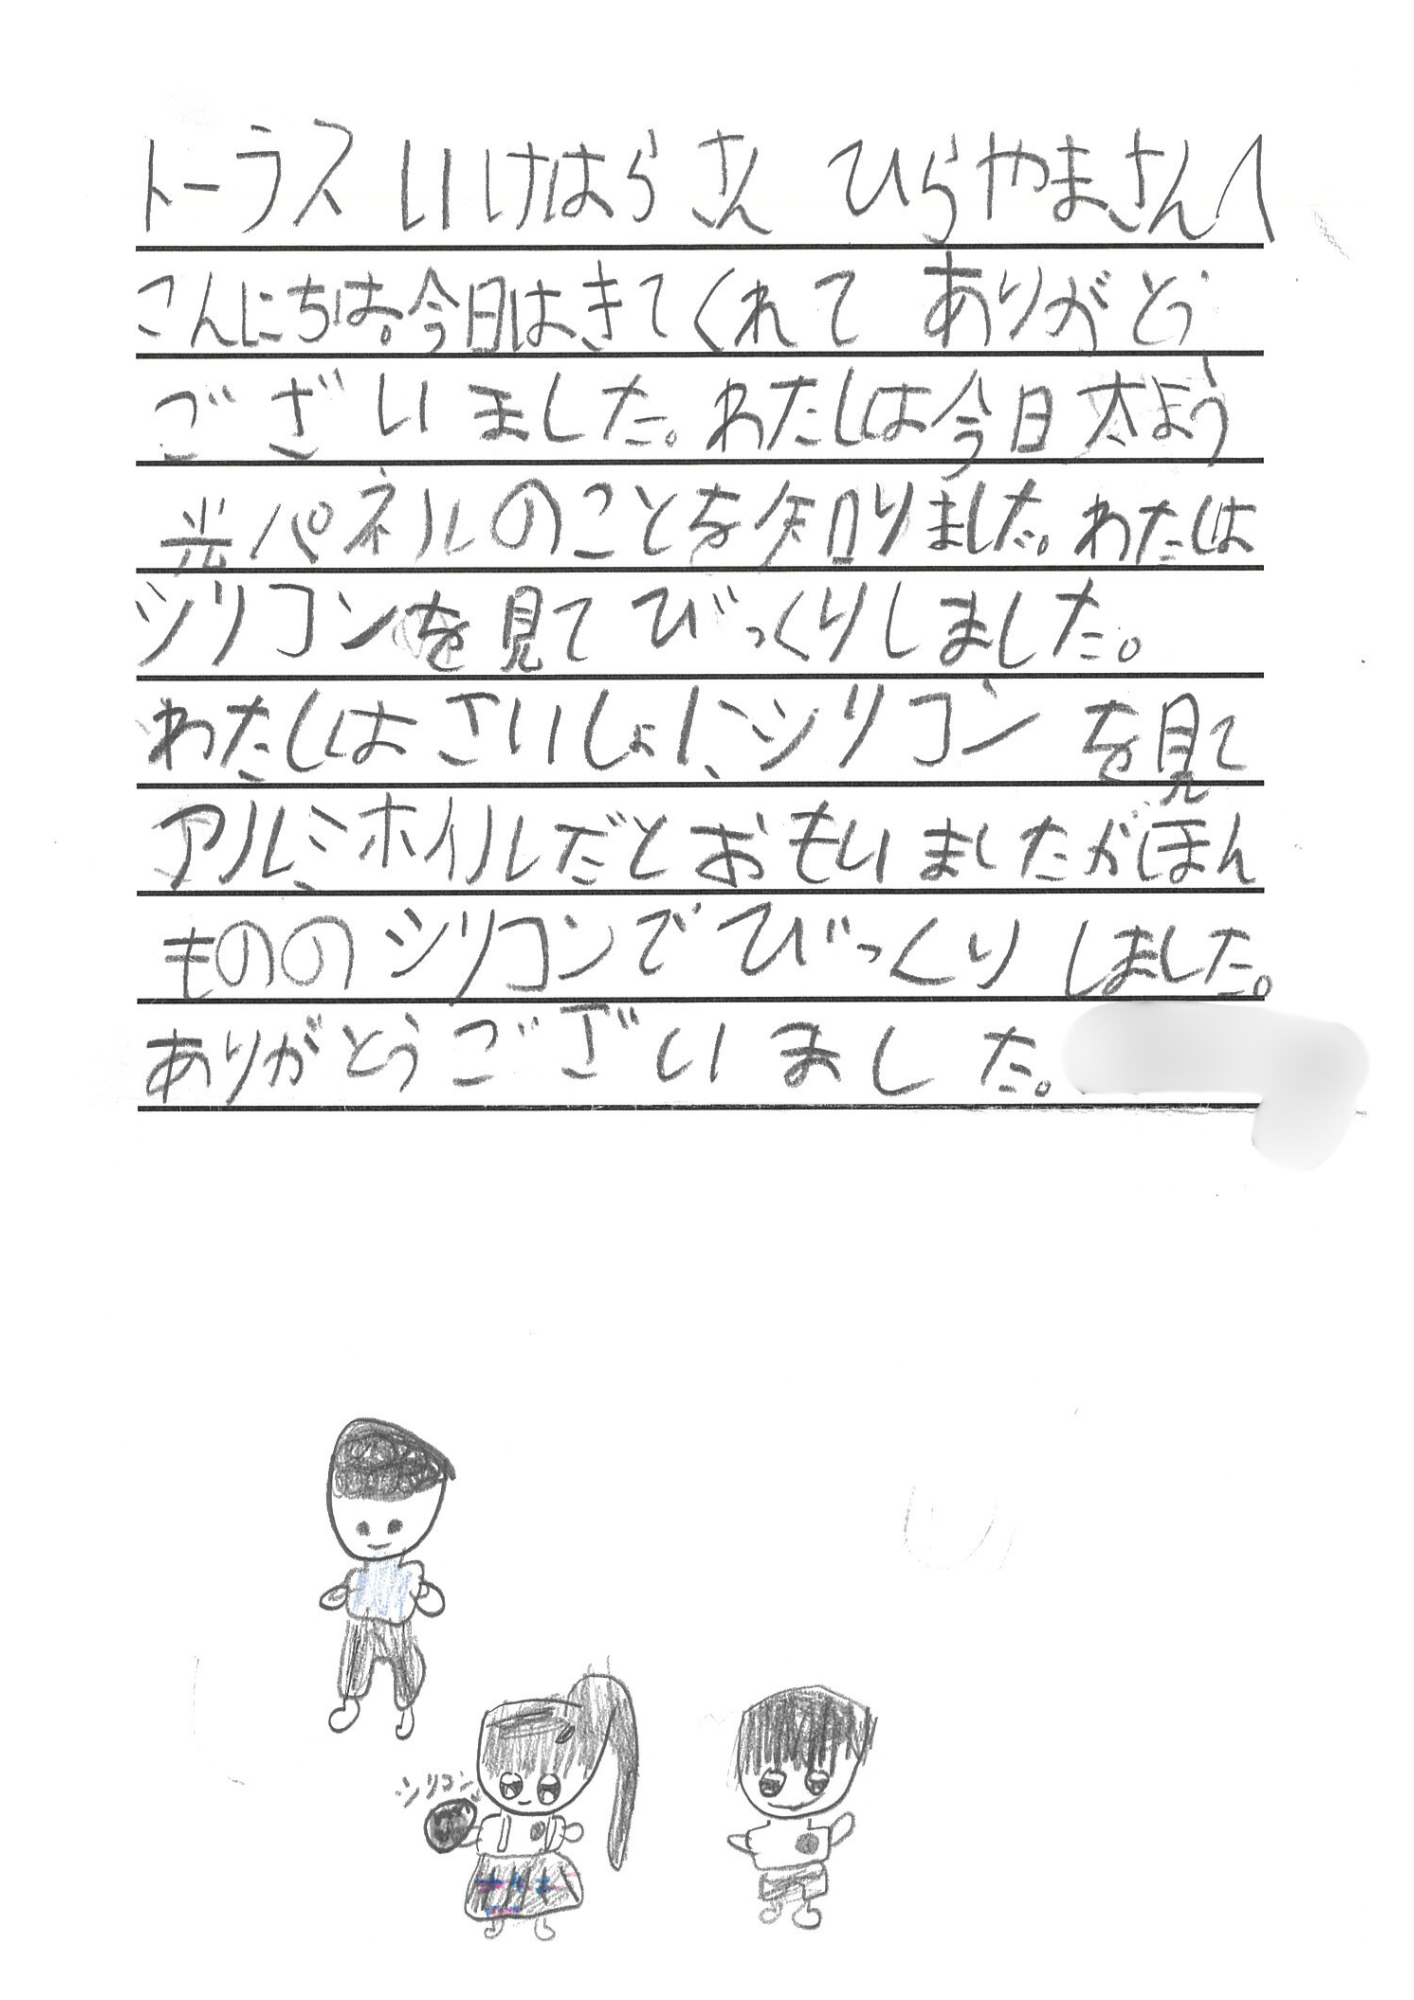 トーラス いけはらさん ひらやまさんへ
こんにちは。今日はきてくれて ありがとう
ございました。わたしは今日太よう
光パネルのことを知りました。わたしは
シリコンを見てびっくりしました。
わたしはさいしょに、シリコンを見て
アルミホイルだとおもいましたがほん
もののシリコンでびっくりしました。
ありがとうございました。
シリコン